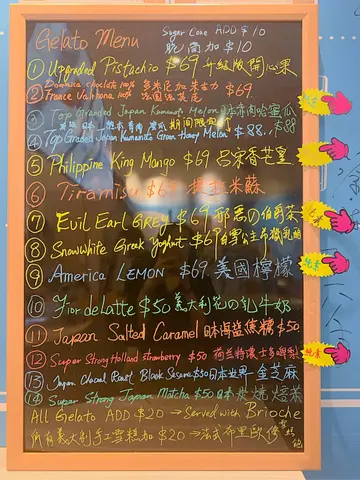 Gelato Menu
Sugar Cone ADD $10
脆筒加 $10
① Upgraded Pistachio $69 升級版開心果
② Dominica chocolate 100% 多米尼加朱古力
France Valrhona 100% 法國 $69
③ Top Graded Japan Kumamoto Melon 日本 哈蜜瓜
期間限定
④ Top Graded Japan Kumamoto Green Honey Melon $88. $88
⑤ Philippine King Mango $69 呂宋香芒皇
⑥ Tiramisu $69 提拉米蘇
⑦ Evil Earl GREY $69 邪悪の伯爵茶
⑧ Snowwhite Greek Yoghut $69 白雪公主希臘乳酪
⑨ America LEMON $69 美國檸檬
⑩ Fior de latte $50 義大利花の乳牛奶
⑪ Japan Salted Caramel 日本海鹽焦糖 $50
⑫ Super Strong Holland strawberry $50 荷蘭特濃士多啤梨
⑬ Japan Chacal Roast Black Sesame $50 日本 金芝麻
⑭ Super Strong Japan Matcha $50 日本 炭燒 焙茶
All Gelato ADD $20 → Served with Brioche
所有義大利手工雪糕加 $20 → 法式布里歐